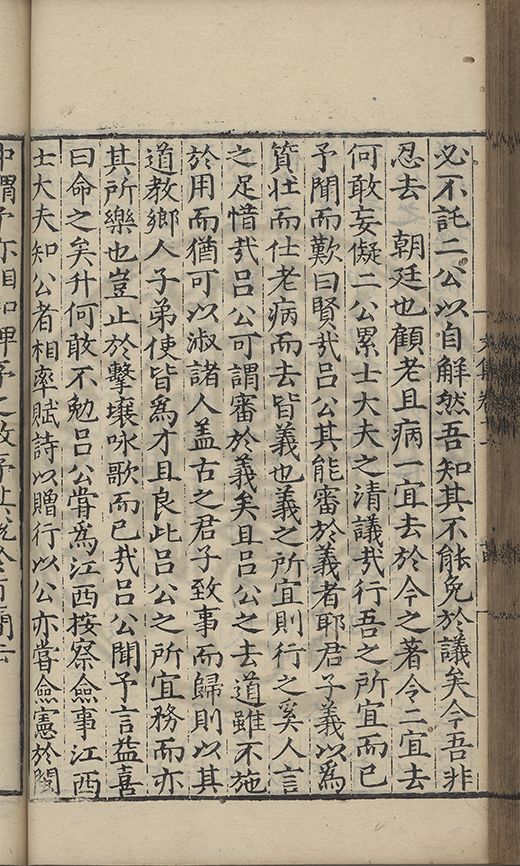 必不託二公以自解然吾知其不能免於議矣今吾非
忍去 朝廷也顧老且病一宜去於今之著令二宜去
何敢妄儗二公累士大夫之清議㢤行吾之所宜而已
予聞而歎曰賢㢤呂公其能審於義者耶君子義以為
質壯而仕老病而去皆義也義之所宜則行之奚人言
之足惜㢤呂公可謂審於義矣且呂公之去道雖不施
於用而猶可以淑諸人盖古之君子致事而歸則以其
道教鄉人子弟使皆爲才且良此呂公之所宜務而亦
其所樂也豈止於擊壤咏歌而已㢤呂公聞予言益喜
曰命之矣升何敢不勉呂公甞爲江西按察僉事江西
士大夫知公者相率賦詩以贈行以公亦嘗僉憲於閩